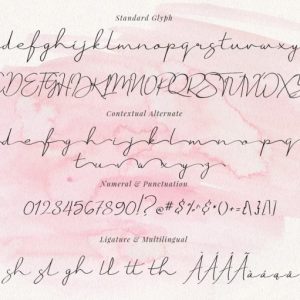 Standard Glyph
abcdefghijklmnopqrstuvwxyz
ABCDEFGHIJKLMNOPQRSTUVWXYZ
Contextual Alternate
abcdefghijklmnopqrs
tuvwxyz
Numeral & Punctuation
0123456789!?@#$%
Ligature & Multilingual
sh sl gh ll tt th